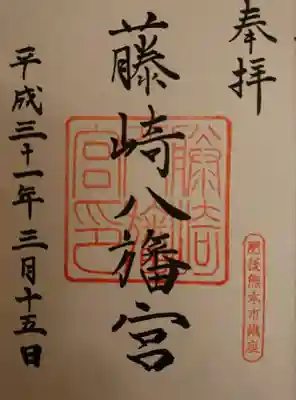 奉拝
藤崎八旛宮
平成三十一年三月十五日
肥後熊本市鎮座